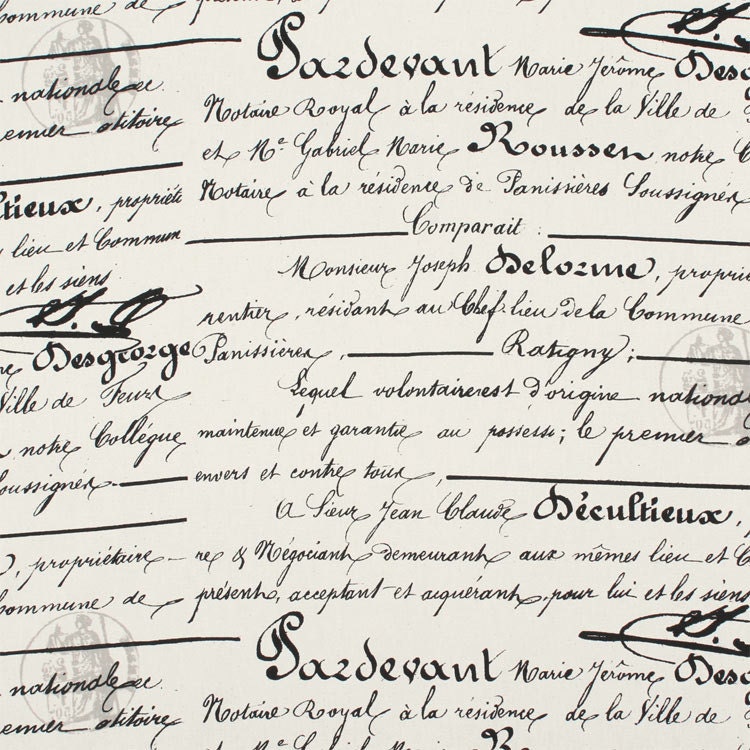 ommune de
nationale et
remier otitoire
ltieux, propriété
lieu et Commun
et les siens
Desgeorge
Ville de Feurs
notre Collégue
oussignés
, propriétaire
ommune de
nationale et
remier otitoire
Pardevant Marie Jérôme Desg
Notaire Royal à la résidence de la Ville de
et Me Gabriel Marie Roussen notre C
Notaire à la résidence de Panissières Soussignés
Comparait :
Monsieur Joseph Delorme, propri
rentier, résidant au Chef-lieu de la Commune
Panissières, Ratigny;
Lequel volontairerest d'origine national
maintenue et garantie au possessi; le premier
envers et contre tous,
A Sieur Jean Claude Décultieux,
re & Négociant demeurant aux mêmes lieu et C
présent, acceptant et aiquérant, pour lui et les siens
Pardevant Marie Jérôme Desg
Notaire Royal à la résidence de la Ville de
et Me Gabriel Marie R